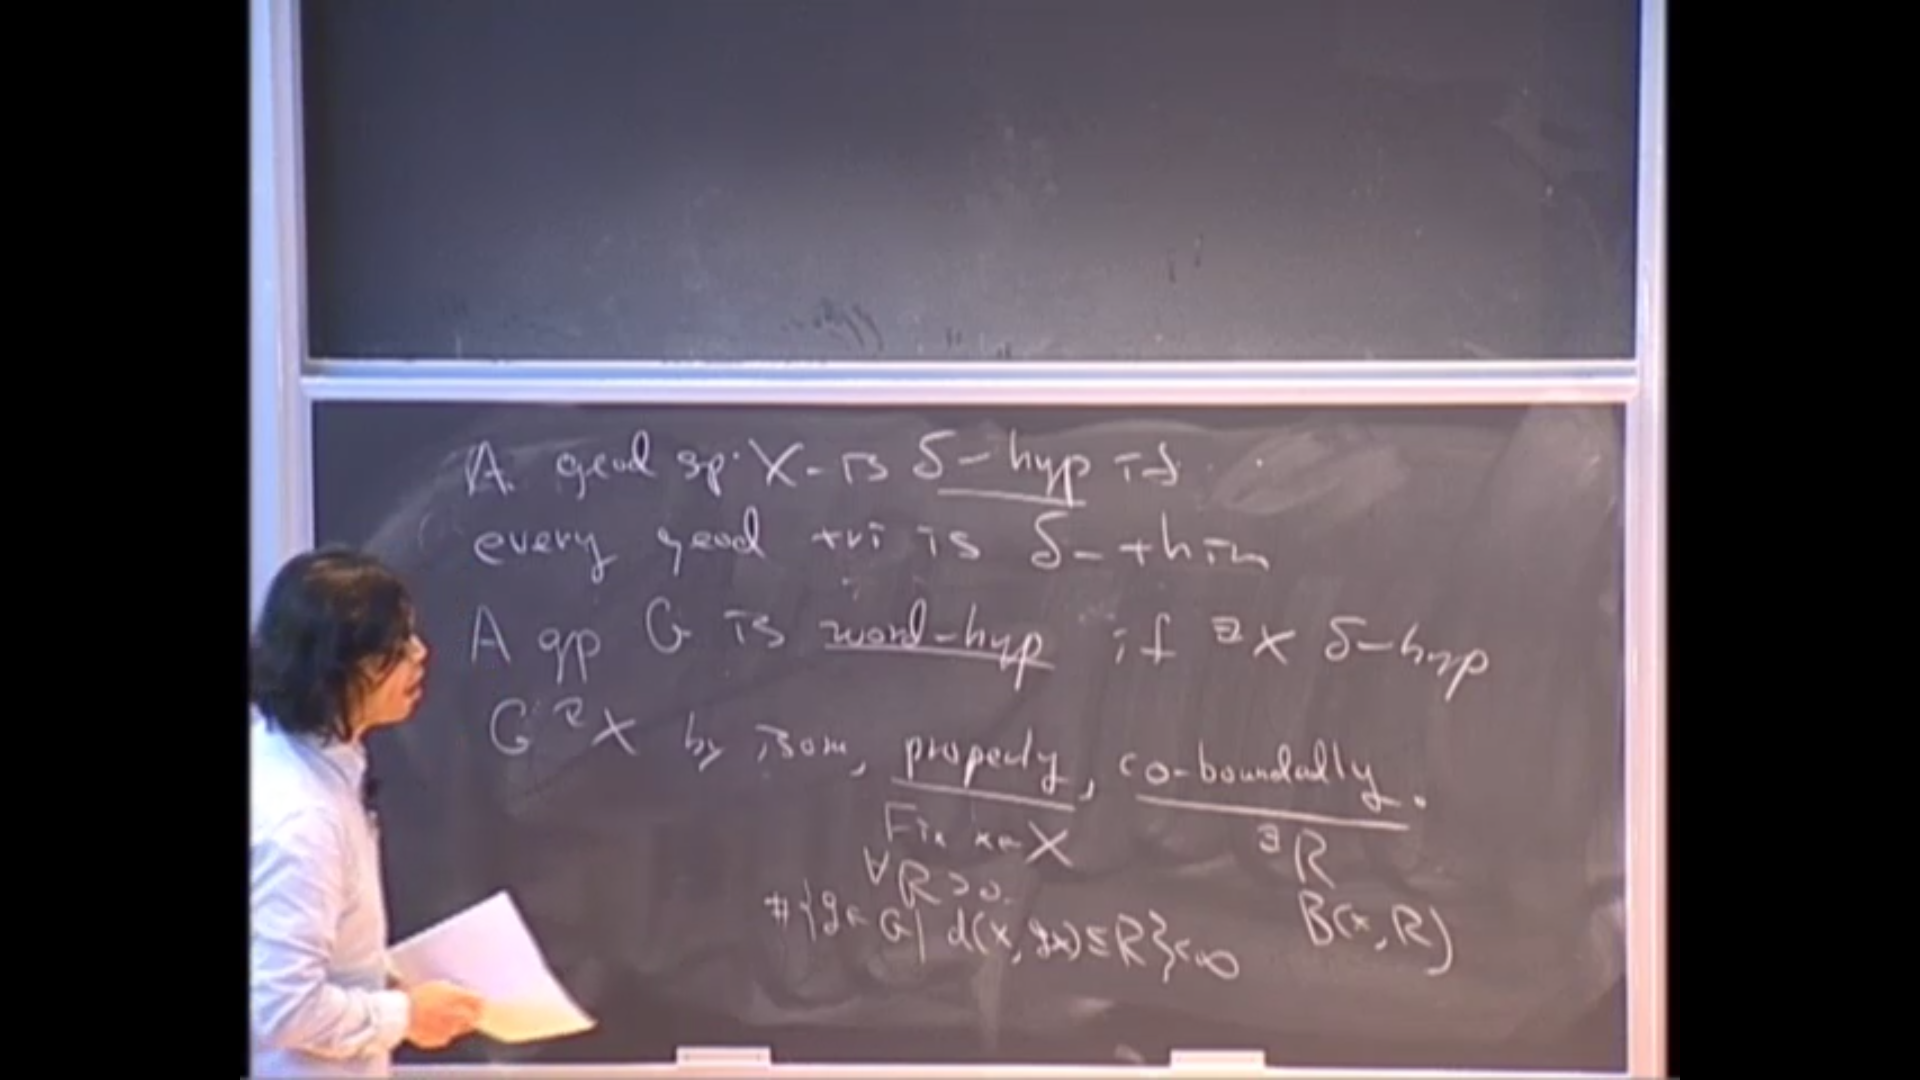 A geod sp. X is δ-hyp if
every geod tri is δ-thin
A gp G is word-hyp if ∃X δ-hyp
G ↷ X by isom, properly, co-boundedly.
Fix x∈X
∀R>0.
#{g∈G| d(x, gx)≤R}<∞
∃R
B(x, R)